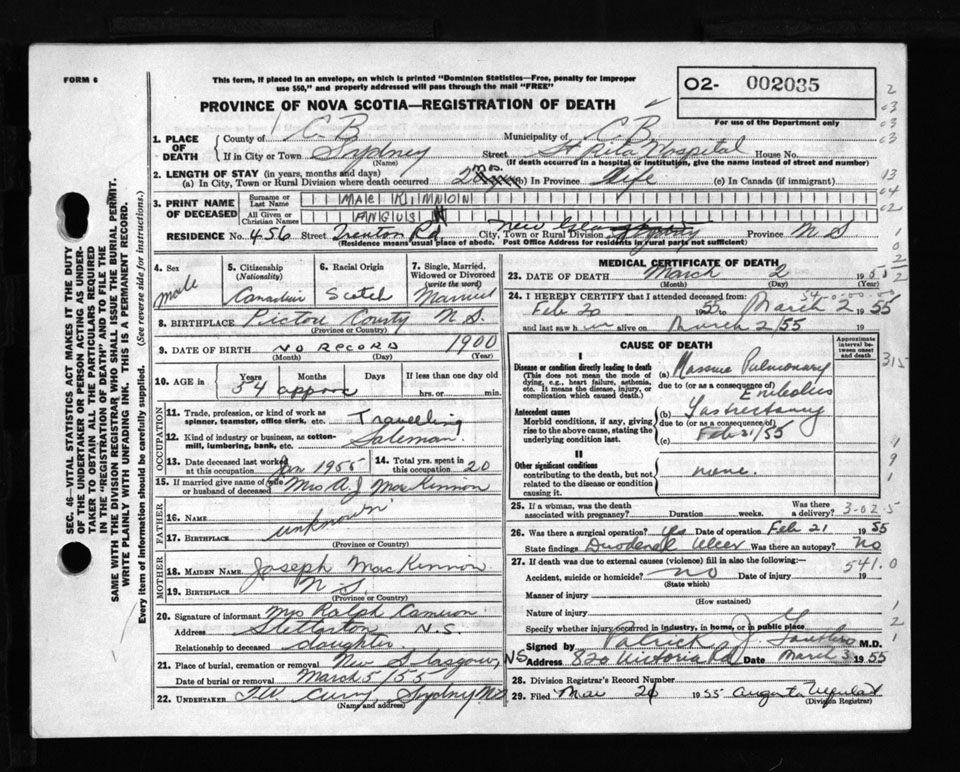 FORM 6
This form, if placed in an envelope, on which is printed "Dominion Statistics—Free, penalty for improper
use $50," and properly addressed will pass through the mail "FREE"
O2- 002035
For use of the Department only
PROVINCE OF NOVA SCOTIA—REGISTRATION OF DEATH
1. PLACE OF DEATH County of C. B. Municipality of C. B.
If in City or Town Sydney (Name) Street St Rita Hospital House No.
(If death occurred in a hospital or institution, give the name instead of street and number)
2. LENGTH OF STAY (in years, months and days)
(a) In City, Town or Rural Division where death occurred 2 mos. (b) In Province Life (c) In Canada (if immigrant)
3. PRINT NAME OF DECEASED Surname or Last Name MacKINNON
All Given or Christian Names ANGUS
RESIDENCE No. 456 Street Trenton Rd City, Town or Rural Division New Province N S
(Residence means usual place of abode. Post Office Address for residents in rural parts not sufficient)
4. Sex Male
5. Citizenship (Nationality) Canadian
6. Racial Origin Scotch
7. Single, Married, Widowed or Divorced (write the word) Married
8. BIRTHPLACE Pictou County N.S.
(Province or Country)
9. DATE OF BIRTH NO RECORD 1900
(Month) (Day) (Year)
10. AGE in Years 54 approx Months Days If less than one day hrs. or min.
OCCUPATION
11. Trade, profession, or kind of work as spinner, teamster, office clerk, etc. Travelling
12. Kind of industry or business, as cotton-mill, lumbering, bank, etc. Salesman.
13. Date deceased last worked at this occupation Jan 1955 14. Total yrs. spent in this occupation 20
15. If married give name of wife or husband of deceased Mrs A. J MacKinnon
FATHER
16. NAME unknown
17. BIRTHPLACE
(Province or Country)
MOTHER
18. MAIDEN NAME Joseph MacKinnon
19. BIRTHPLACE N S.
(Province or Country)
20. Signature of informant Mrs Ralph Cameron
Address Stellarton N.S.
Relationship to deceased daughter
21. Place of burial, cremation or removal New Glasgow,
Date of burial or removal March 5/55
22. UNDERTAKER T W Curry Sydney N.S.
(Name and address)
MEDICAL CERTIFICATE OF DEATH
23. DATE OF DEATH March 2 1955
(Month) (Day) (Year)
24. I HEREBY CERTIFY that I attended deceased from:
Feb 20 1955 to March 2 1955
and last saw him alive on March 2/55 19
CAUSE OF DEATH
Approximate interval between onset and death
I
Disease or condition directly leading to death
(This does not mean the mode of dying, e.g., heart failure, asthenia, etc. It means the disease, injury, or complication which caused death.)
(a) Massive Pulmonary
due to (or as a consequence of) Embolus
Antecedent causes
Morbid conditions, if any, giving rise to the above cause, stating the underlying condition last.
(b) Gastrectomy
due to (or as a consequence of)
(c) Feb 21/55
II
Other significant conditions
contributing to the death, but not related to the disease or condition causing it.
none.
315
25. If a woman, was the death associated with pregnancy? Duration weeks. Was there a delivery? 3-02-5
26. Was there surgical operation? Yes Date of operation Feb 21 1955
State findings Duodenal Ulcer Was there an autopsy? No
27. If death was due to external causes (violence) fill in also the following: 541.0
Accident, suicide or homicide? no Date of injury 19
(State which)
Manner of injury
(How sustained)
Nature of injury
Specify whether injury occurred in industry, in home, or in public place
Signed by Patrick J. M.D.
N S Address 820 Victoria Rd Date March 3 1955
28. Division Registrar's Record Number
29. Filed Mar 26 1955 Augusta
(Division Registrar)
SEC. 46—VITAL STATISTICS ACT MAKES IT THE DUTY
OF THE UNDERTAKER OR PERSON ACTING AS UNDERTAKER
TO OBTAIN ALL THE PARTICULARS REQUIRED
IN THE "REGISTRATION OF DEATH" AND TO FILE THE
SAME WITH THE DIVISION REGISTRAR WHO SHALL ISSUE THE BURIAL PERMIT.
WRITE PLAINLY WITH UNFADING INK. THIS IS A PERMANENT RECORD.
Every item of information should be carefully supplied. (See reverse side for instructions.)